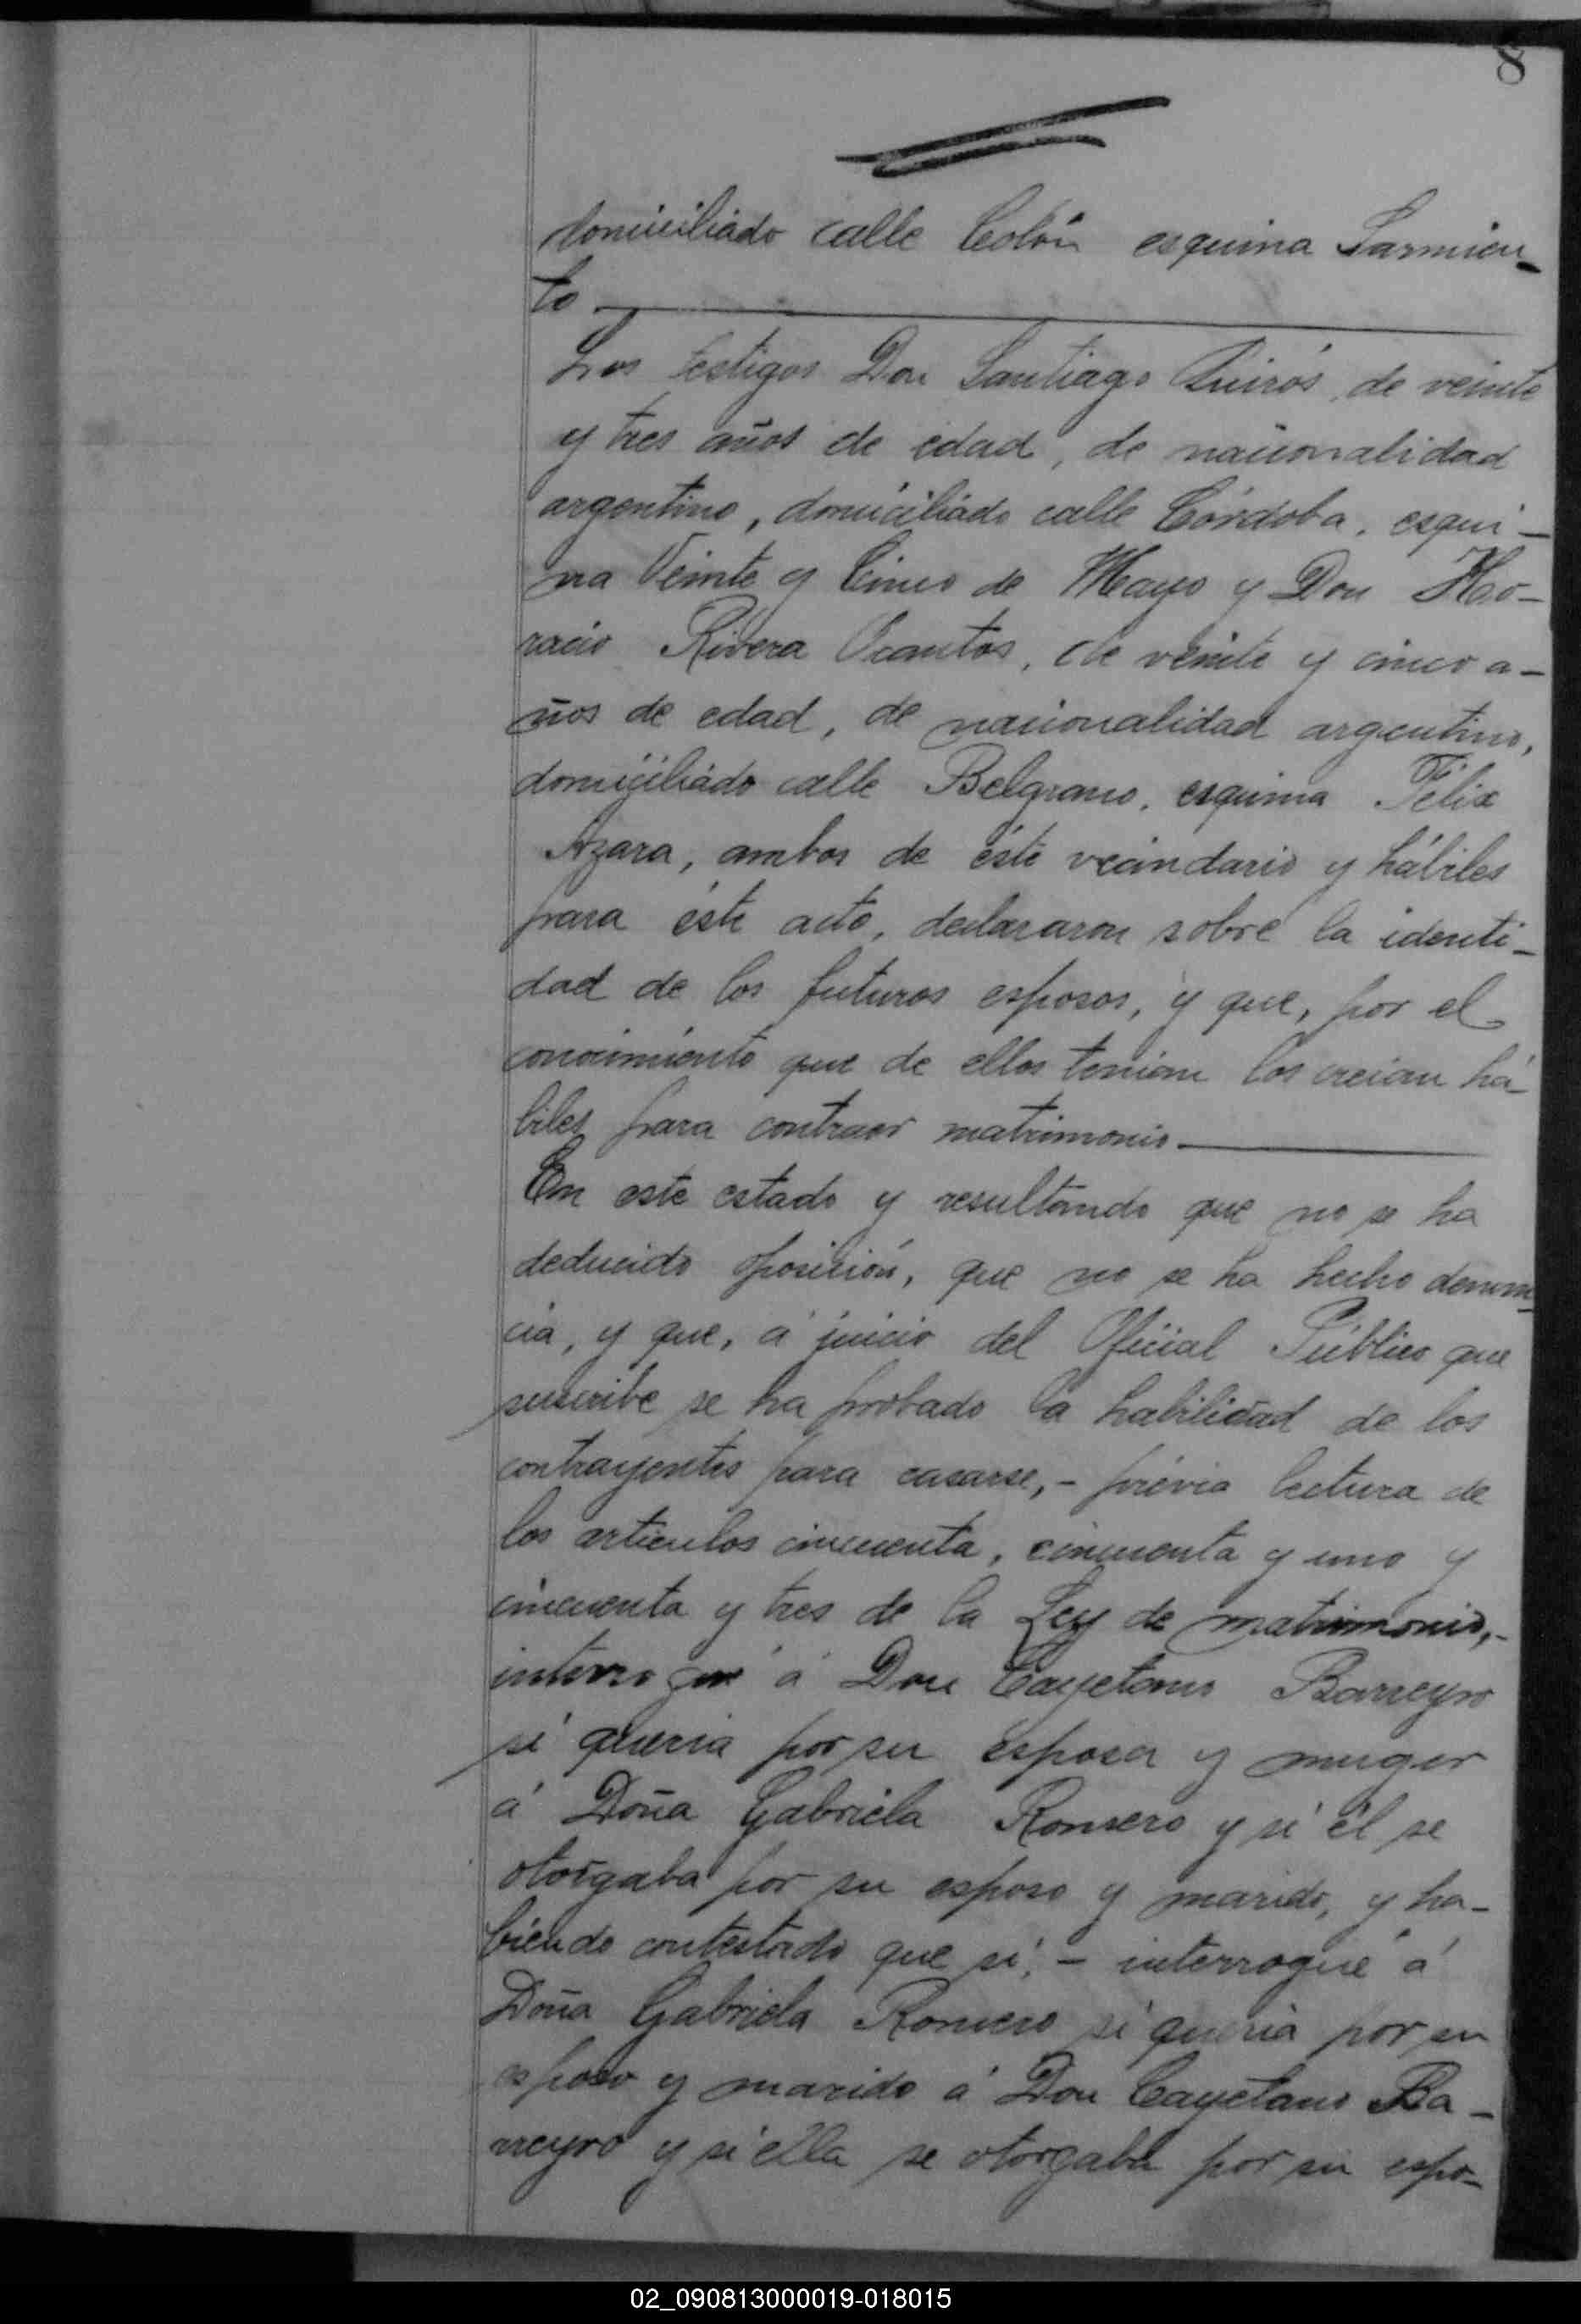 8
domiciliado calle Colón esquina Sarmien-
to
Los testigos Don Santiago Quirós, de veinte
y tres años de edad, de nacionalidad
argentino, domiciliado calle Córdoba, esqui-
na Veinte y Cinco de Mayo y Don Ho-
racio Rivera Ocantos, de veinte y cinco a-
ños de edad, de nacionalidad argentino,
domiciliado calle Belgrano, esquina Félix
Azara, ambos de éste vecindario y hábiles
para éste acto, declararon sobre la identi-
dad de los futuros esposos, y que, por el
conocimiento que de ellos tenian los creian há-
biles para contraer matrimonio
En este estado y resultando que no se ha
deducido oposición, que no se ha hecho denun-
cia, y que, á juicio del Oficial Público que
suscribe se ha probado la habilidad de los
contrayentes para casarse, - prévia lectura de
los articulos cincuenta, cincuenta y uno y
cincuenta y tres de la Ley de matrimonio, -
interrogué á Don Cayetano Barreyro
si queria por su esposa y muger
á Doña Gabriela Romero y si él se
otorgaba por su esposo y marido, y ha-
biendo contestado que si, - interrogué á
Doña Gabriela Romero si queria por su
esposo y marido á Don Cayetano Ba-
rreyro y si ella se otorgaba por su espo-
02_090813000019-018015